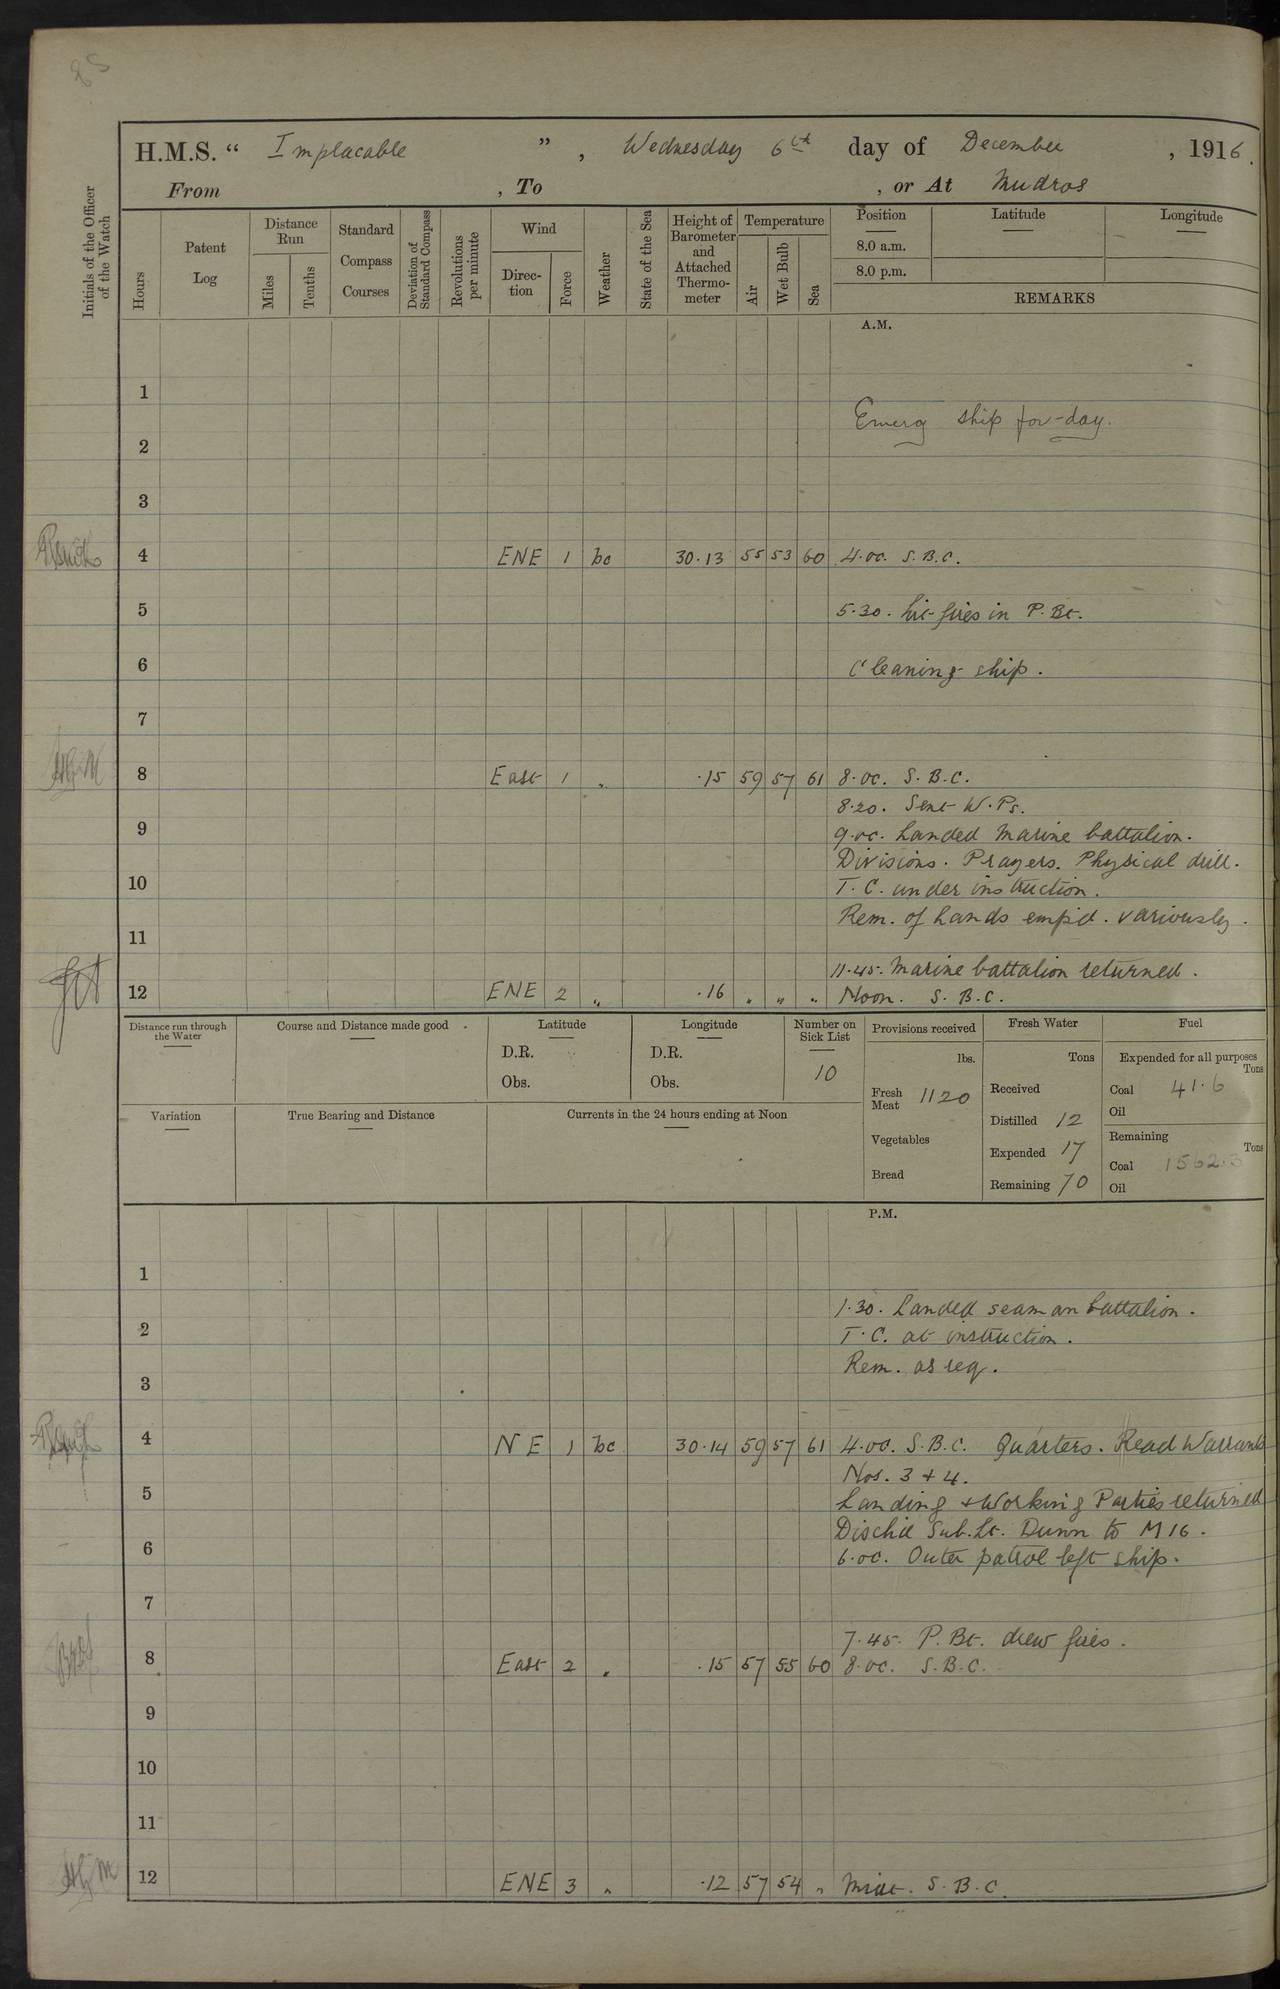 85
H.M.S. “ Implacable ”, Wednesday 6th day of December , 1916.
From , To , or At Mudros
Initials of the Officer of the Watch
Hours
Patent Log
Distance Run
Miles
Tenths
Standard Compass Courses
Deviation of Standard Compass
Revolutions per minute
Wind
Direc-tion
Force
Weather
State of the Sea
Height of Barometer and Attached Thermo-meter
Temperature
Air
Wet Bulb
Sea
Position
8.0 a.m.
8.0 p.m.
Latitude
Longitude
REMARKS
A.M.
1
Emerg ship for-day.
2
3
4 ENE 1 bc 30.13 55 53 60 4.oc. S.B.C.
5 5.30. Lit fires in P. Bt.
6 Cleaning ship.
7
8 East 1 „ .15 59 57 61 8.oc. S.B.C.
8.20. Sent W.Ps.
9 9.oc. Landed Marine battalion.
Divisions. Prayers. Physical drill.
10 T.C. under instruction.
Rem. of hands emp'd. variously.
11
11.45. Marine battalion returned.
12 ENE 2 „ .16 „ „ „ Noon. S.B.C.
Distance run through the Water
Course and Distance made good
Latitude
D.R.
Obs.
Longitude
D.R.
Obs.
Number on Sick List
10
Provisions received
lbs.
Fresh Meat 1120
Vegetables
Bread
Fresh Water
Tons
Received
Distilled 12
Expended 17
Remaining 70
Fuel
Expended for all purposes
Tons
Coal 41.6
Oil
Remaining
Tons
Coal 1562.3
Oil
Variation
True Bearing and Distance
Currents in the 24 hours ending at Noon
P.M.
1
1.30. Landed seaman battalion.
2 T.C. at instruction.
Rem. as req.
3
4 NE 1 bc 30.14 59 57 61 4.oc. S.B.C. Quarters. Read Warrants
Nos. 3 + 4.
5 Landing + Working Parties returned
Disch'd Sub. Lt. Dunn to M16.
6 6.oc. Outer patrol left ship.
7
7.45. P. Bt. drew fires.
8 East 2 „ .15 57 55 60 8.oc. S.B.C.
9
10
11
12 ENE 3 „ .12 57 54 „ Midt. S.B.C.